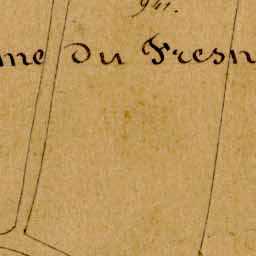 941.
me du Fresn